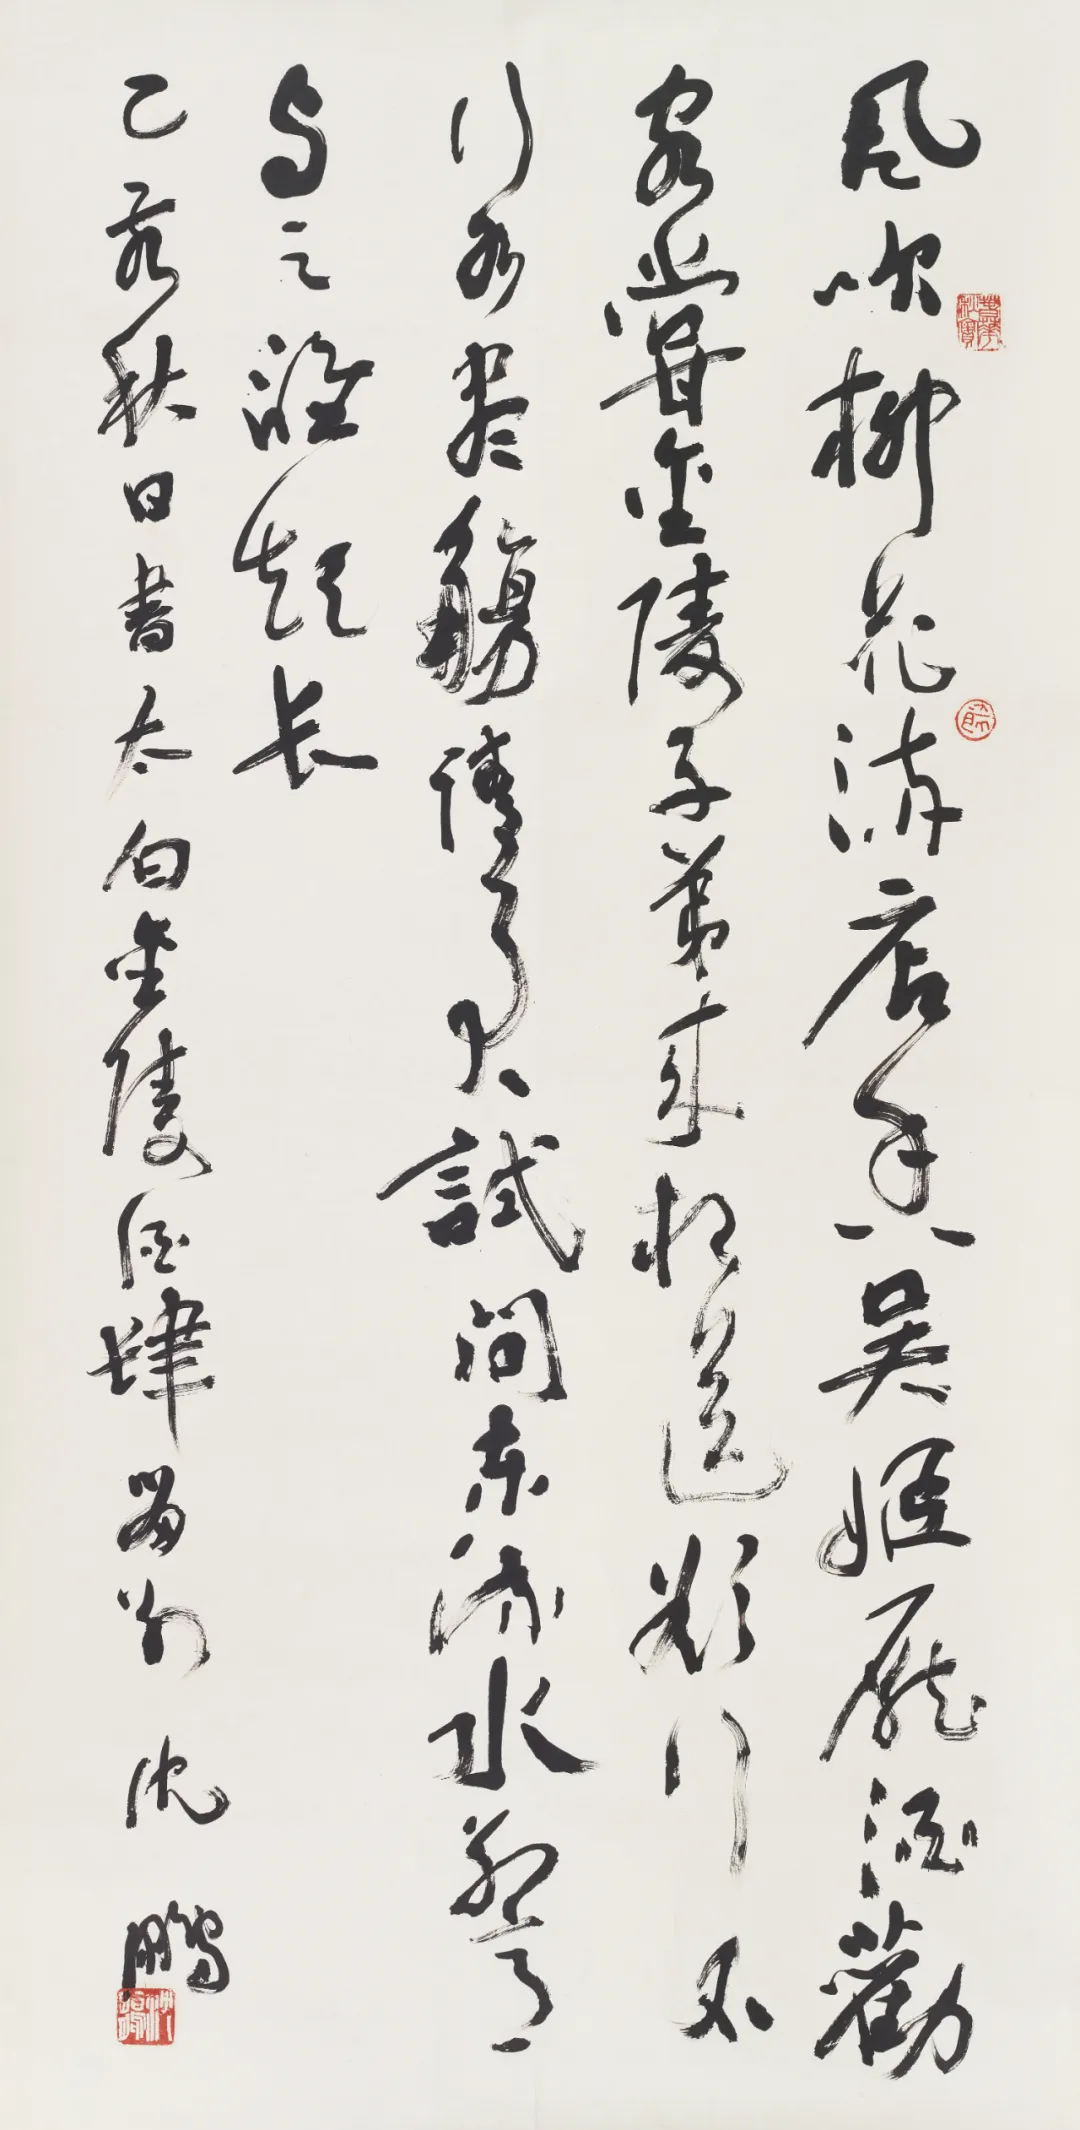 风吹柳花满店香吴姬壓酒勸
客嘗金陵子弟来相送欲行不
行各尽觴請君試问东流水别意
与之誰短长
乙亥秋日書太白金陵酒肆留别 沈鵬